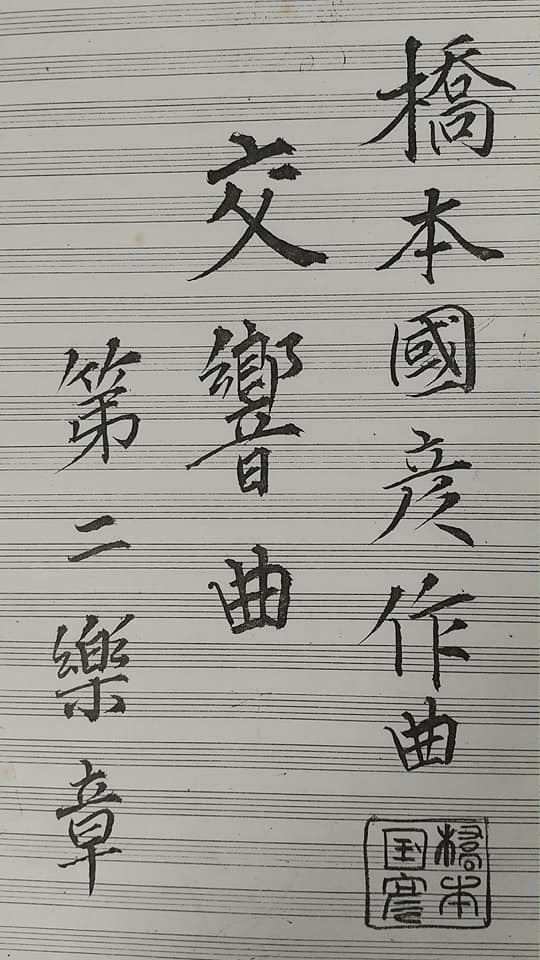 橋本國彦作曲
交響曲
第二樂章
橋本
国彦